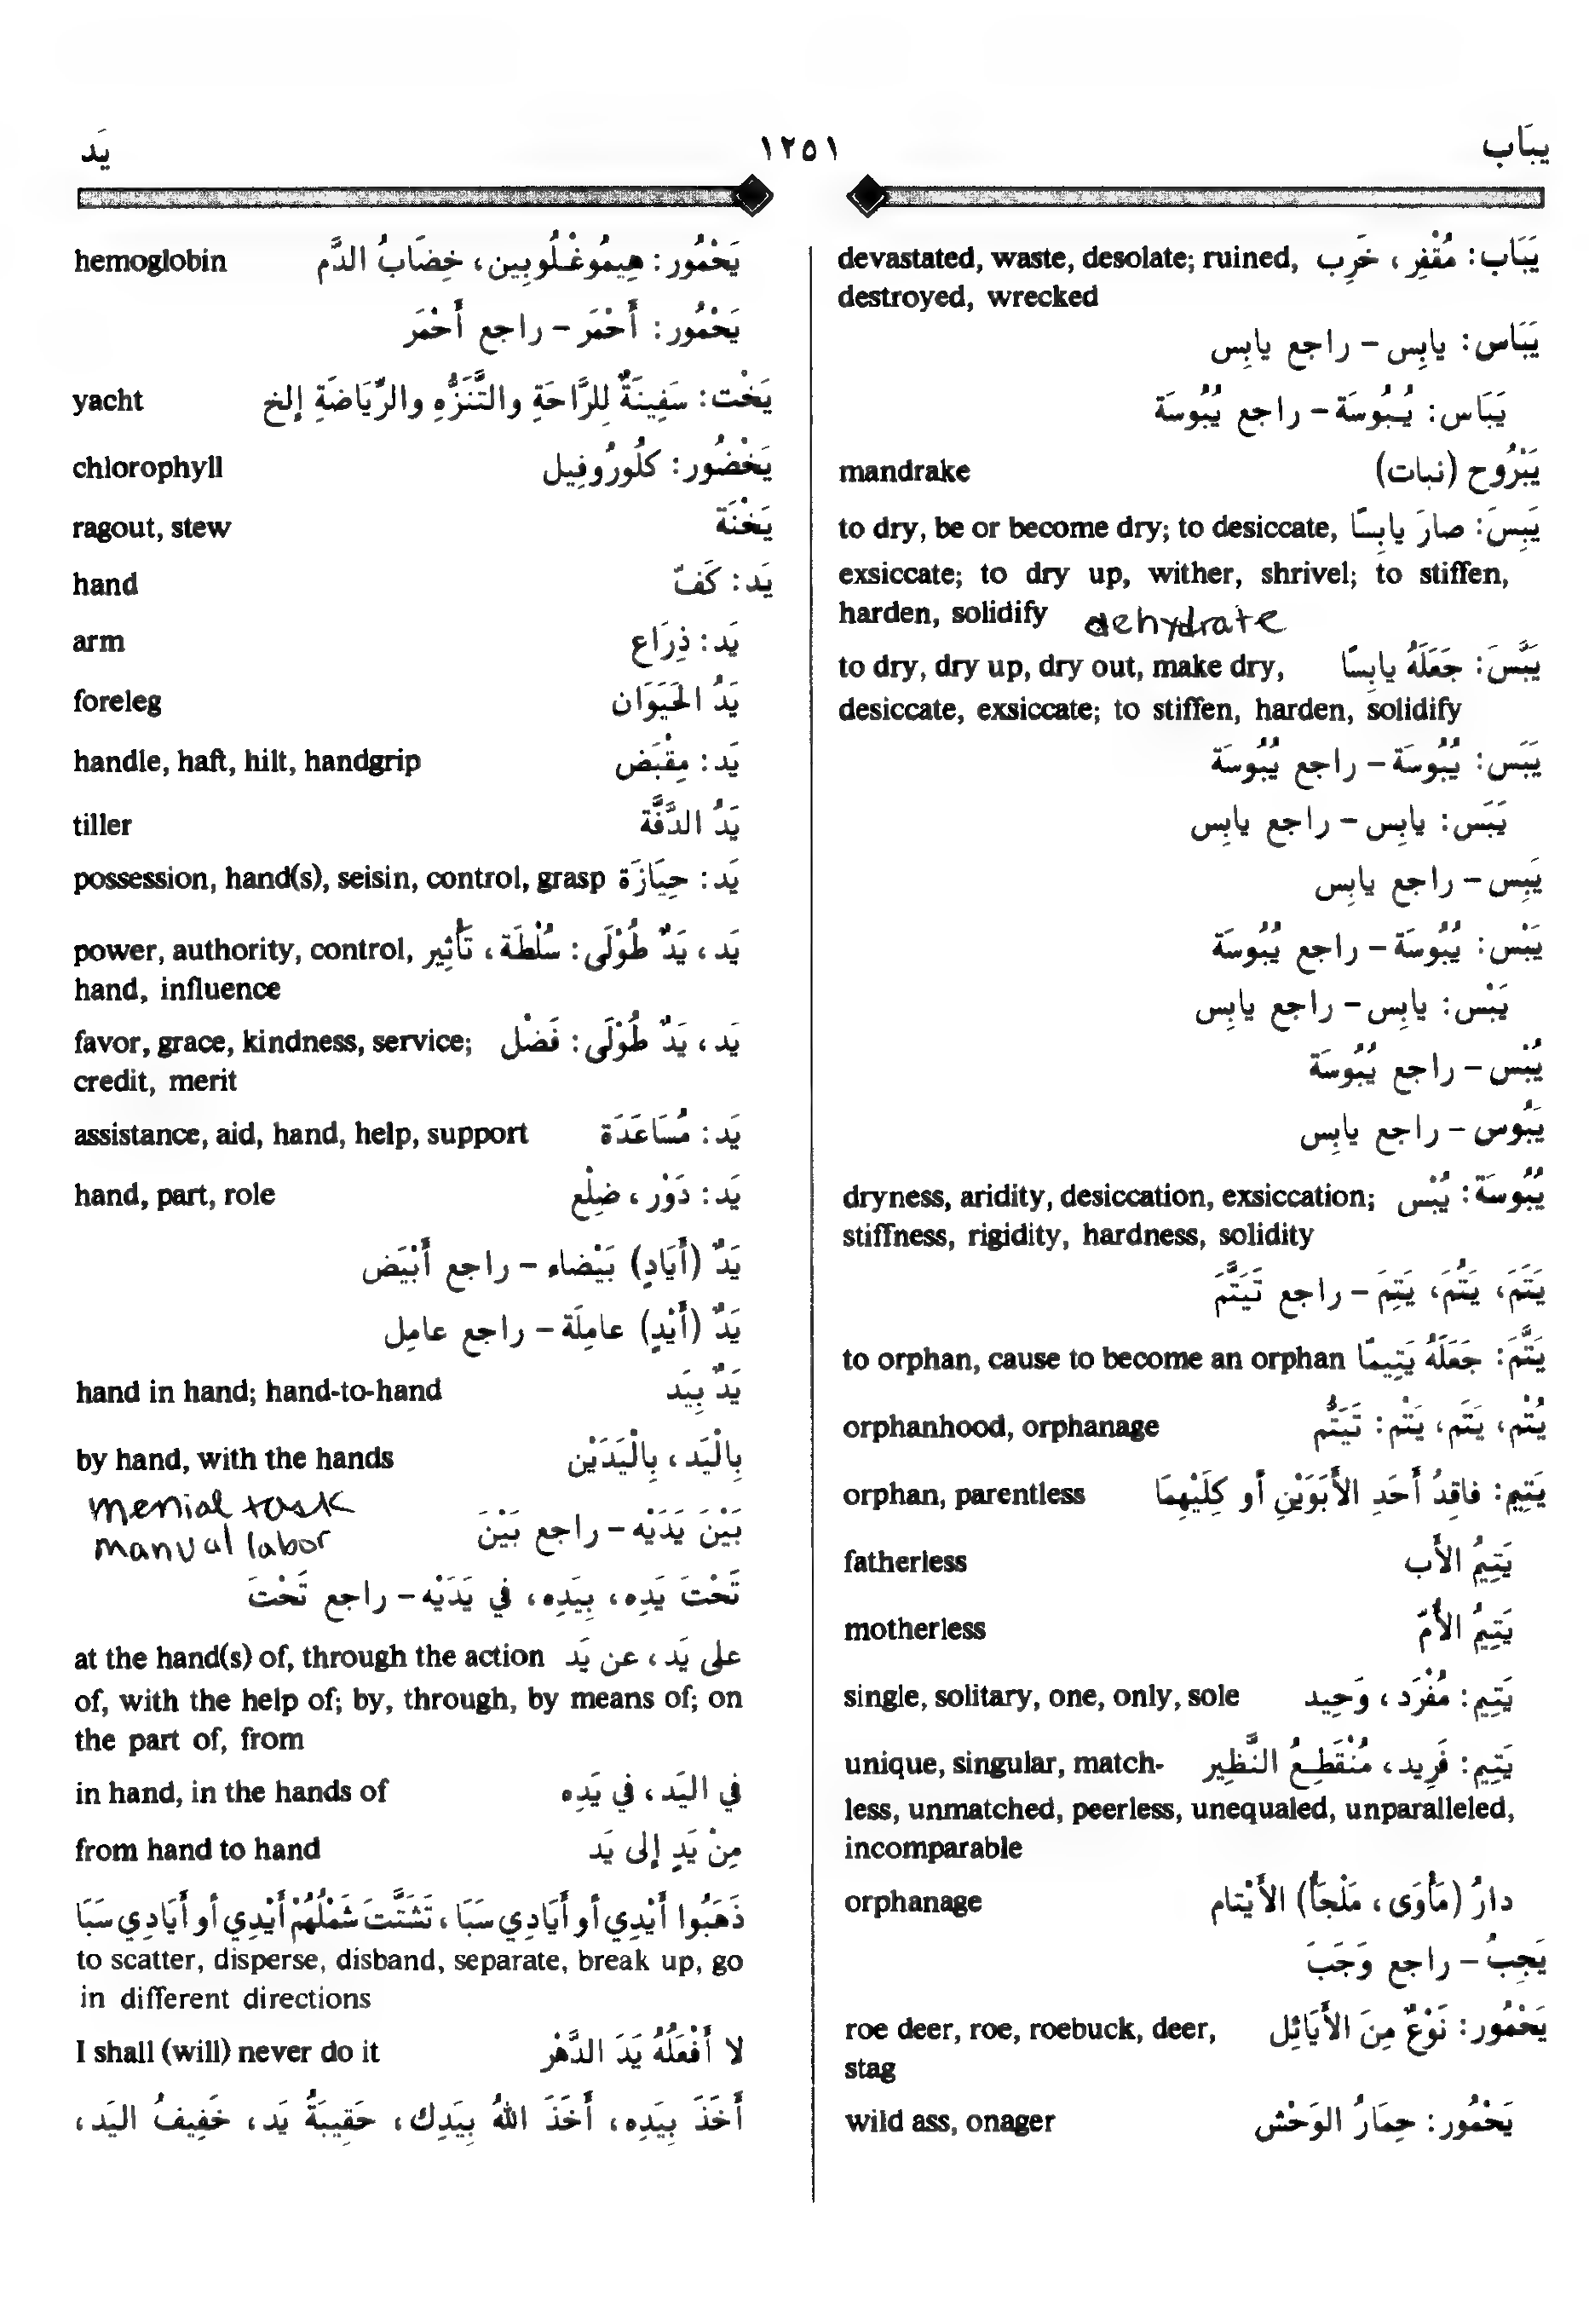 يبَاب ١٢٥١ يَد
يَبَاب: مُقْفِر، خَرِب devastated, waste, desolate; ruined,
destroyed, wrecked
يَبَاس: يابِس – راجع يابِس
يَبَاس: يُبُوسَة – راجع يُبُوسَة
يَبْرُوح (نبات) mandrake
يَبِسَ: صارَ يابِسًا to dry, be or become dry; to desiccate,
exsiccate; to dry up, wither, shrivel; to stiffen,
harden, solidify dehydrate
يَبَّسَ: جَعَلَهُ يابِسًا to dry, dry up, dry out, make dry,
desiccate, exsiccate; to stiffen, harden, solidify
يَبَس: يُبُوسَة – راجع يُبُوسَة
يَبَس: يابِس – راجع يابِس
يَبِس – راجع يابِس
يَبْس: يُبُوسَة – راجع يُبُوسَة
يَبْس: يابِس – راجع يابِس
يُبْس – راجع يُبُوسَة
يَبُوس – راجع يابِس
يُبُوسَة: يُبْس dryness, aridity, desiccation, exsiccation;
stiffness, rigidity, hardness, solidity
يَتَمَ، يَتُمَ، يَتِمَ – راجع تَيَتَّمَ
يَتَّمَ: جَعَلَهُ يَتِيمًا to orphan, cause to become an orphan
يُتْم، يَتَم، يَتْم: تَيَتُّم orphanhood, orphanage
يَتِيم: فاقِدُ أَحَدِ الأَبَوَيْنِ أو كِلَيْهِمَا orphan, parentless
يَتِيمُ الأَب fatherless
يَتِيمُ الأُمّ motherless
يَتِيم: مُفْرَد، وَحِيد single, solitary, one, only, sole
يَتِيم: فَرِيد، مُنْقَطِعُ النَّظِير unique, singular, match-
less, unmatched, peerless, unequaled, unparalleled,
incomparable
دارُ (مَأْوَى، مَلْجَأُ) الأَيْتام orphanage
يَجِبُ – راجع وَجَبَ
يَحْمُور: نَوْعٌ مِنَ الأَيَائِل roe deer, roe, roebuck, deer,
stag
يَحْمُور: حِمَارُ الوَحْش wild ass, onager
يَحْمُور: هِيمُوغْلُوبِين، خِضَابُ الدَّم hemoglobin
يَحْمُور: أَحْمَر – راجع أَحْمَر
يَخْت: سَفِينَةٌ لِلرَّاحَةِ والتَّنَزُّهِ والرِّيَاضَةِ إلخ yacht
يَخْضُور: كلُورُوفِيل chlorophyll
يَخْنَة ragout, stew
يَد: كَفّ hand
يَد: ذِرَاع arm
يَدُ الحَيَوَان foreleg
يَد: مِقْبَض handle, haft, hilt, handgrip
يَدُ الدَّفَّة tiller
يَد: حِيَازَة possession, hand(s), seisin, control, grasp
يَد، يَدٌ طُوْلَى: سُلْطَة، تَأْثِير power, authority, control,
hand, influence
يَد، يَدٌ طُوْلَى: فَضْل favor, grace, kindness, service;
credit, merit
يَد: مُسَاعَدَة assistance, aid, hand, help, support
يَد: دَوْر، ضِلْع hand, part, role
يَدٌ (أَيَادٍ) بَيْضاء – راجع أَبْيَض
يَدٌ (أَيْدٍ) عامِلَة – راجع عامِل
يَدٌ بِيَد hand in hand; hand-to-hand
بِالْيَد، بِالْيَدَيْن by hand, with the hands
menial task
manual labor
بَيْنَ يَدَيْه – راجع بَيْنَ
تَحْتَ يَدِه، بِيَدِه، في يَدَيْه – راجع تَحْتَ
على يَد، عن يَد at the hand(s) of, through the action
of, with the help of; by, through, by means of; on
the part of, from
في اليَد، في يَدِه in hand, in the hands of
مِنْ يَدٍ إلى يَد from hand to hand
ذَهَبُوا أَيْدِي أو أَيَادِي سَبَا، تَشَتَّتَ شَمْلُهُمْ أَيْدِي أو أَيَادِي سَبَا
to scatter, disperse, disband, separate, break up, go
in different directions
لا أَفْعَلُهُ يَدَ الدَّهْر I shall (will) never do it
أَخَذَ بِيَدِه، أَخَذَ اللهُ بِيَدِك، حَقِيبَةُ يَد، خَفِيفُ اليَد،